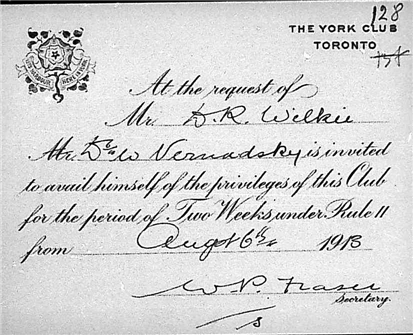 128
THE YORK CLUB
TORONTO
At the request of
Mr. D. R. Wilkie
Mr. W Vernadsky is invited
to avail himself of the privileges of this Club
for the period of Two Weeks, under Rule 11
from Augst 6th 1913
W P. Fraser
Secretary.